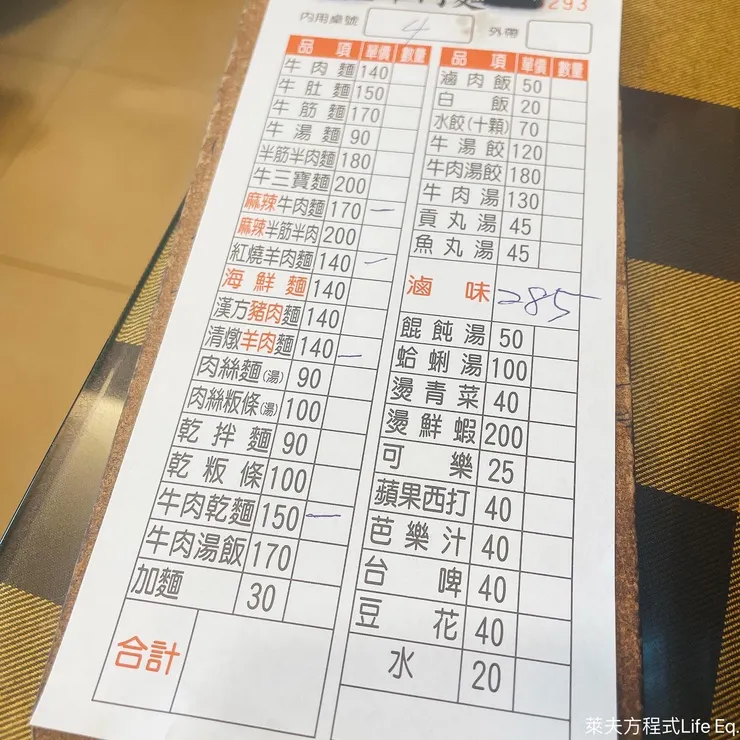 293
內用桌號 4 外帶
品項 單價 數量
牛肉麵 140
牛肚麵 150
牛筋麵 170
牛湯麵 90
半筋半肉麵 180
牛三寶麵 200
麻辣牛肉麵 170 —
麻辣半筋半肉 200
紅燒羊肉麵 140 —
海鮮麵 140
漢方豬肉麵 140
清燉羊肉麵 140 —
肉絲麵(湯) 90
肉絲粄條(湯) 100
乾拌麵 90
乾粄條 100
牛肉乾麵 150 —
牛肉湯飯 170
加麵 30
合計
品項 單價 數量
滷肉飯 50
白飯 20
水餃(十顆) 70
牛湯餃 120
牛肉湯餃 180
牛肉湯 130
貢丸湯 45
魚丸湯 45
滷味 285
餛飩湯 50
蛤蜊湯 100
燙青菜 40
燙鮮蝦 200
可樂 25
蘋果西打 40
芭樂汁 40
台啤 40
豆花 40
水 20
萊夫方程式Life Eq.